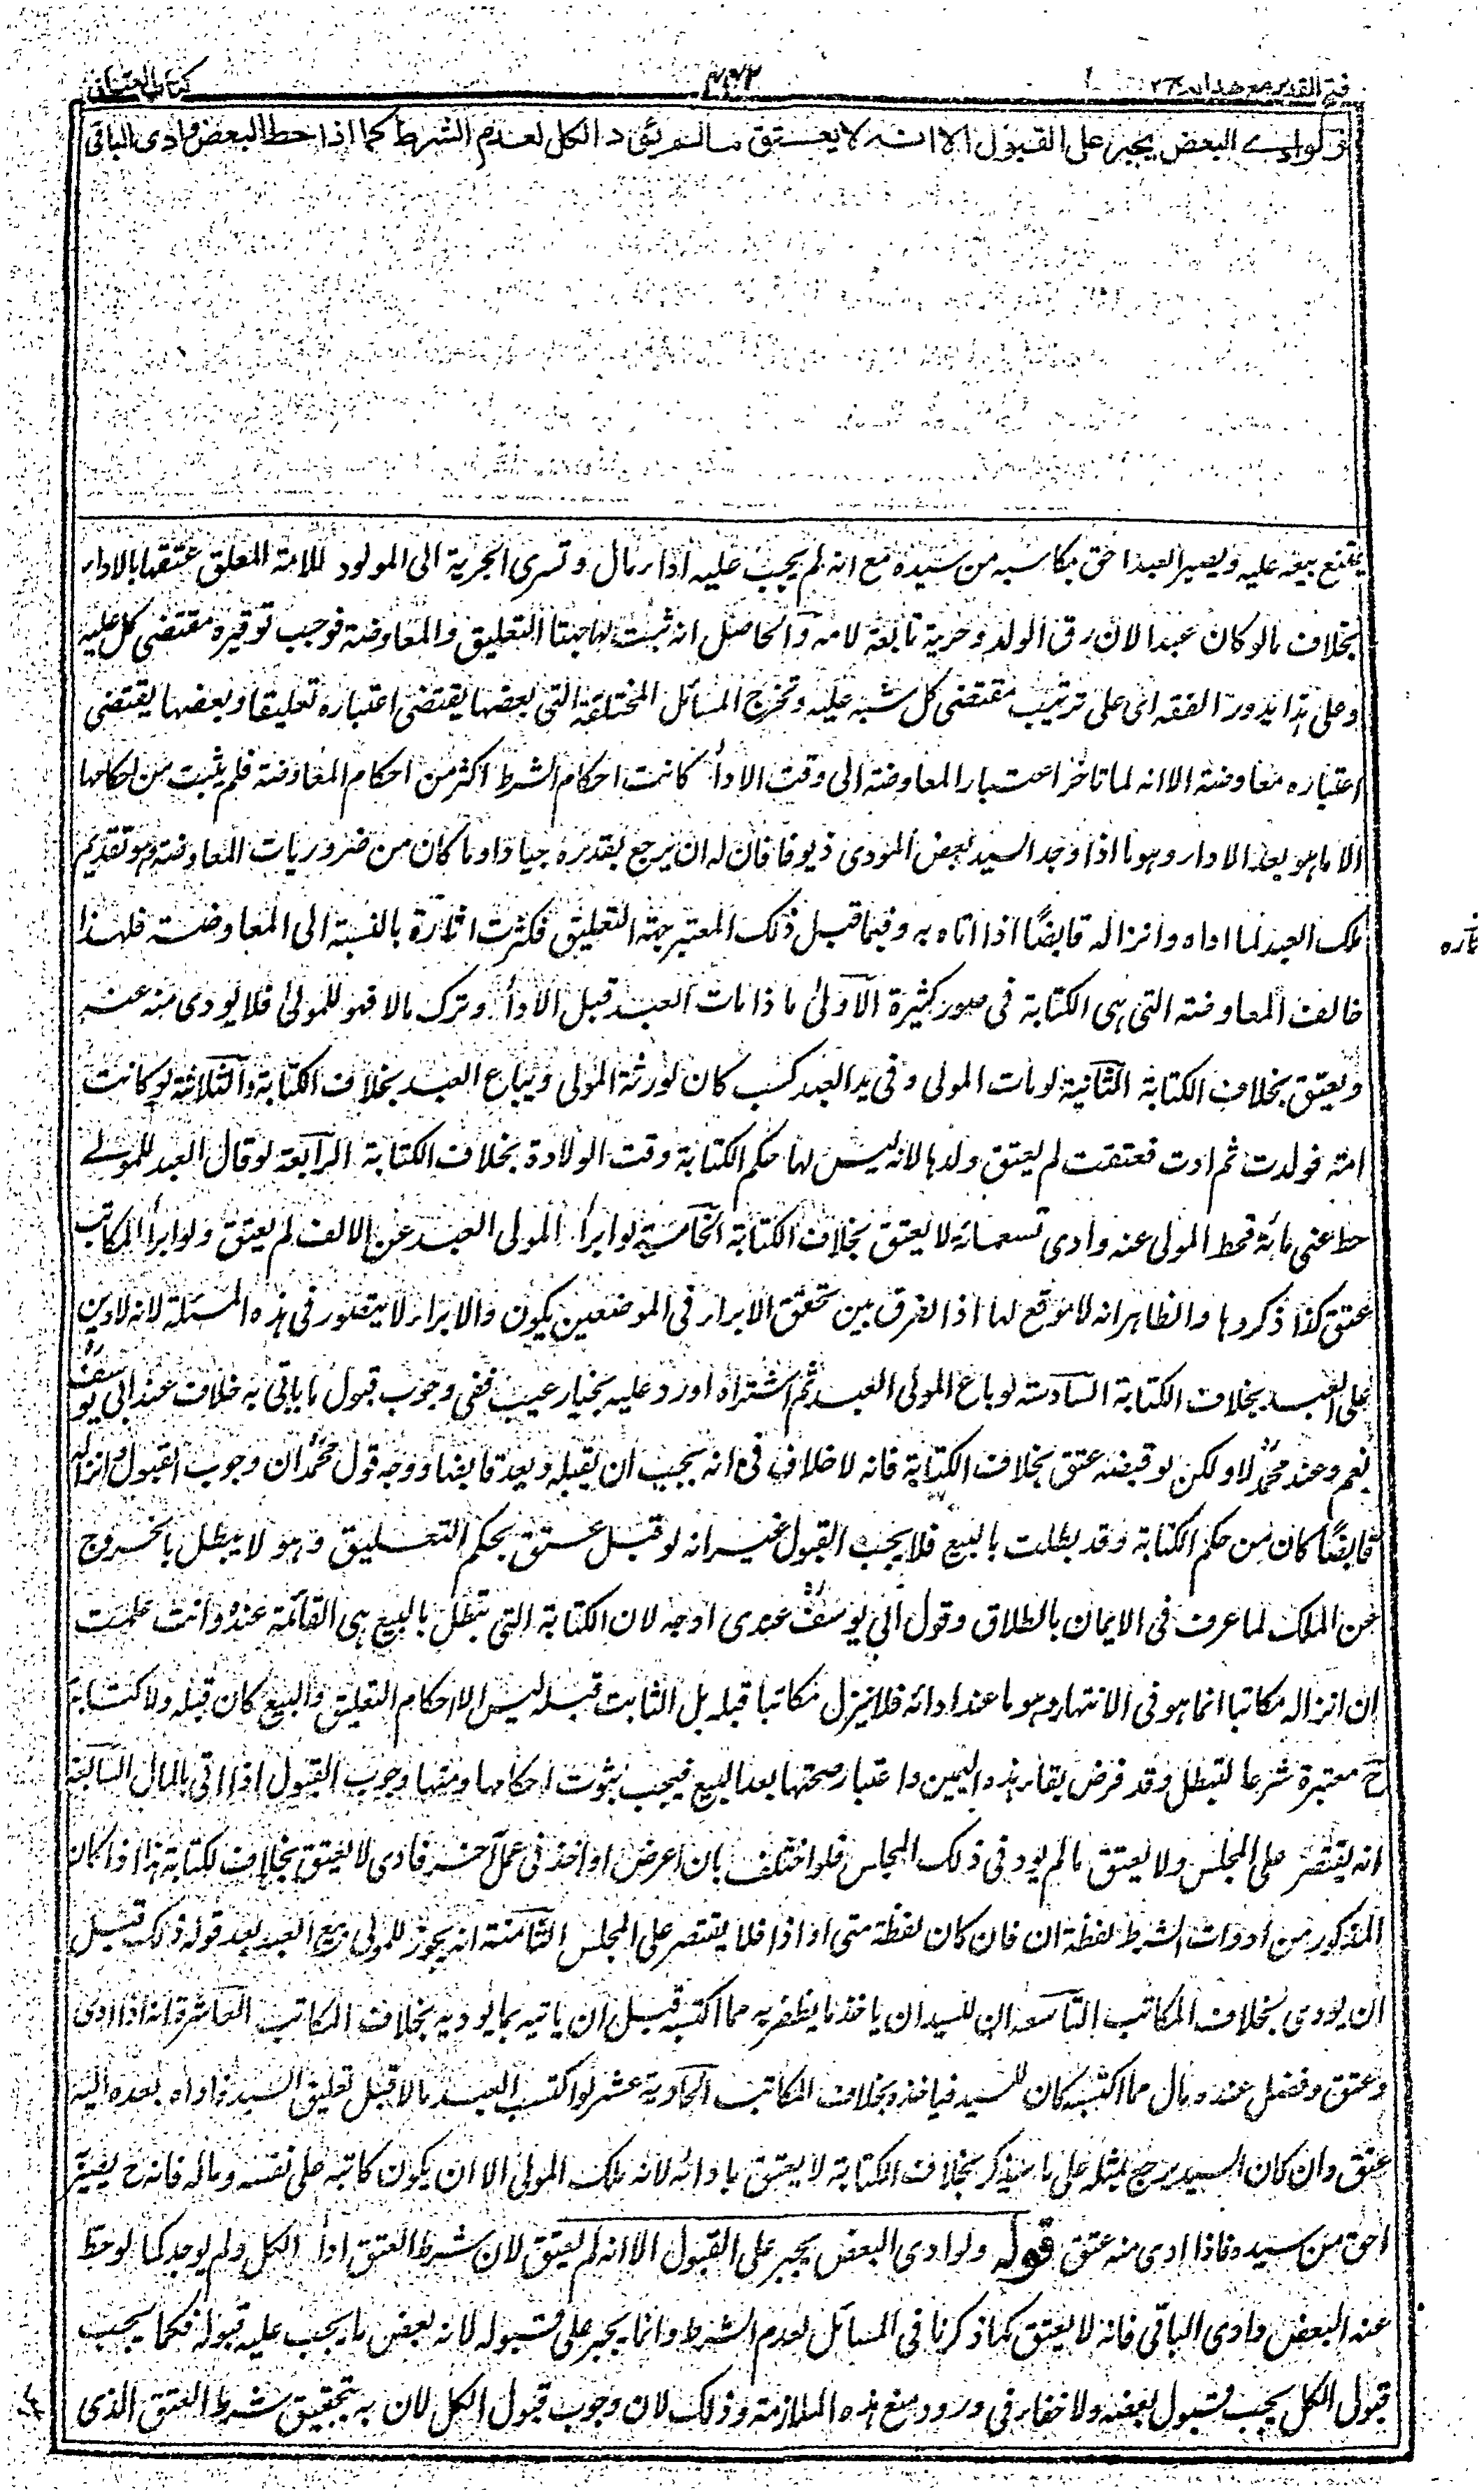 فتح القدير مع هدايه ج٢
٤٤٢
كتاب العتاق
ثم لو ادى البعض يجبر على القبول الا انه لا يعتق مالم يؤد الكل لعدم الشرط كما اذا حط البعض وادى الباقى
يمتنع بيعه عليه ويصير العبد احق بمكاسبه من سيده مع انه لم يجب عليه اداء مال وتسرى الحرية الى المولود للامة المعلق عتقها بالاداء
بخلاف مالو كان عبدا لان رق الولد وحرية تابعة لامه والحاصل انه ثبت لها جهتا التعليق والمعاوضة فوجب توفيره مقتضى كل عليه
وعلى هذا يدور الفقه اى على ترتيب مقتضى كل شبه عليه وتخرج المسائل المختلفة التى بعضها يقتضى اعتباره تعليقا وبعضها يقتضى
اعتباره معاوضة الا انه لما تاخر اعتبار المعاوضة الى وقت الاداء كانت احكام الشرط اكثر من احكام المعاوضة فلم يثبت من احكامها
الا ما هو بعد الاداء وهو ما اذا وجد السيد بعض المودى زيوفا فان له ان يرجع بقدره جيادا وما كان من ضروريات المعاوضة وهو تقديم
ملك العبد لما اداه وانزاله قابضًا اذا اتاه به وفيما قبل ذلك المعتبر جهة التعليق فكثرت اثاره بالنسبة الى المعاوضة فلهذا
ثاره
خالفت المعاوضة التى هى الكتابة فى صور كثيرة الاولى ما ذا مات العبد قبل الاداء وترك مالا فهو للمولى فلا يودى منه عنه
ويعتق بخلاف الكتابة الثانية لو مات المولى وفى يد العبد كسب كان لورثة المولى ويباع العبد بخلاف الكتابة والثلاثة لو كانت
امة فولدت ثم ادت فعتقت لم يعتق ولدها لانه ليس لها حكم الكتابة وقت الولادة بخلاف الكتابة الرابعة لو قال العبد للمولى
حط عنى مائة فحط المولى عنه وادى تسعمائة لا يعتق بخلاف الكتابة الخامسة لو ابرأ المولى العبد عن الالف لم يعتق ولو ابرأ المكاتب
عتق كذا ذكروها والظاهر انه لا موقع لها اذ الفرق بين تحقق الابراء فى الموضعين يكون والابراء لا يتصور فى هذه المسئلة لانه لا دين
على العبد بخلاف الكتابة السادسة لو باع المولى العبد ثم اشتراه او رد عليه بخيار عيب ففى وجوب قبول ما ياتى به خلاف عند ابى يوسف
نعم وعند محمد لا ولكن لو قبضه عتق بخلاف الكتابة فانه لا خلاف فى انه يجب ان يقبله ويعد قابضا ووجه قول محمد ان وجوب القبول وانزاله
قابضًا كان من حكم الكتابة وقد بطلت بالبيع فلا يجب القبول غير انه لو قبل عتق بحكم التعليق وهو لا يبطل بالخروج
عن الملك لما عرف فى الايمان بالطلاق وقول ابى يوسف عندى اوجه لان الكتابة التى تبطل بالبيع هى القائمة عنده وانت علمت
ان انزاله مكاتبا انما هو فى الانتهاء وهو ما عند ادائه فلا ينزل مكاتبا قبله بل الثابت قبله ليس الا احكام التعليق والبيع كان قبله ولا كتابة
ح معتبرة شرعا لتبطل وقد فرض بقاء هذه اليمين واعتبار صحتها بعد البيع فيجب ثبوت احكامها ومنها وجوب القبول اذا اتى بالمال السابعة
انه يقتصر على المجلس ولا يعتق مالم يود فى ذلك المجلس فلو اختلف بان اعرض او اخذ فى عمل آخر فادى لا يعتق بخلاف الكتابة هذا اذا كان
المذكور من ادوات الشرط لفظة ان فان كان لفظة متى او اذا فلا يقتصر على المجلس الثامنة انه يجوز للمولى بيع العبد بعد قوله ذلك قبل
ان يودى بخلاف المكاتب التاسعة ان للسيد ان ياخذ ما يظفر به مما اكتسبه قبل ان ياتيه بما يوديه بخلاف المكاتب العاشرة انه اذا ادى
وعتق وفضل عنده مال مما اكتسبه كان للسيد فياخذه بخلاف المكاتب الحادية عشر لو اكتسب العبد مالا قبل تعليق السيد فاداه بعده اليه
عتق وان كان السيد يرجع بمثله على ما سيذكر بخلاف الكتابة لا يعتق بادائه لانه ملك المولى الا ان يكون كاتبه على نفسه وماله فانه ح يصير
احق من سيده فاذا ادى منه عتق قوله ولو ادى البعض يجبر على القبول الا انه لم يعتق لان شرط العتق اداء الكل ولم يوجد كما لو حط
عنه البعض وادى الباقى فانه لا يعتق كما ذكرنا فى المسائل لعدم الشرط وانما يجبر على قبوله لانه بعض ما يجب عليه قبوله فكما يجب
قبول الكل يجب قبول بعضه ولا خفاء فى ورود منع هذه الملازمة وذلك لان وجوب قبول الكل لان به تحقيق شرط العتق الذى